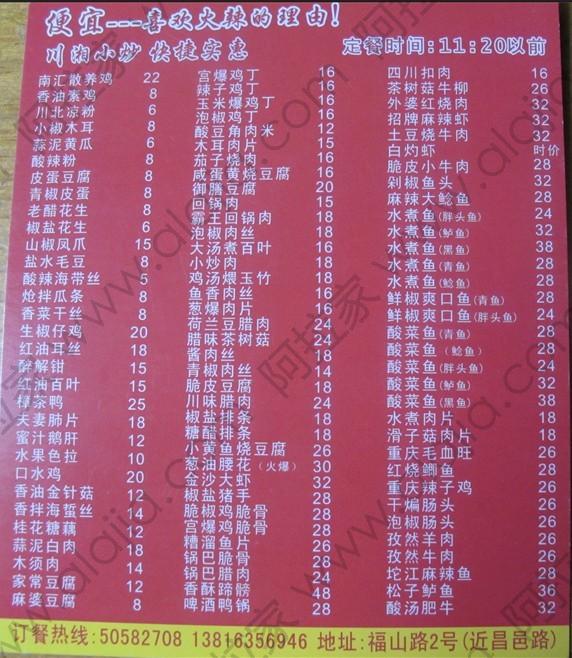 便宜---喜欢火辣的理由!
川湘小炒 快捷实惠
定餐时间:11:20以前
南汇散养鸡 22
香油素鸡 8
川北凉粉 6
小椒木耳 8
蒜泥黄瓜 6
酸辣粉 8
皮蛋豆腐 8
青椒皮蛋 8
老醋花生 8
椒盐花生 6
山椒凤爪 15
盐水毛豆 8
酸辣海带丝 5
炝拌瓜条 8
香菜干丝 8
生椒仔鸡 20
红油耳丝 18
醉解钳 15
红油百叶 15
樟茶鸭 25
夫妻肺片 18
蜜汁鹅肝 12
水果色拉 10
口水鸡 20
香油金针菇 12
香拌海蜇丝 14
桂花糖藕 12
蒜泥白肉 18
木须肉 14
家常豆腐 12
麻婆豆腐 8
宫爆鸡丁 16
辣子鸡丁 16
玉米爆鸡丁 16
泡椒鸡丁 16
酸豆角肉米 12
木耳肉片 15
茄子烧肉 16
咸蛋黄烧豆腐 16
御膳豆腐 20
回锅肉 15
霸王回锅肉 18
泡椒肉丝 18
大汤煮百叶 16
小炒肉 18
鸡汤煨玉竹 18
鱼香肉丝 16
葱爆肉片 16
荷兰豆腊肉 24
腊味茶树菇 24
酱肉丝 18
青椒肉丝 14
脆皮豆腐 18
川味腊肉 24
椒盐排条 18
糖醋排条 18
小黄鱼烧豆腐 26
葱油腰花(火爆) 30
金沙大虾 32
椒盐猪手 28
脆椒鸡脆骨 28
宫爆鸡脆骨 28
糟溜鱼片 26
锅巴脆骨 28
锅巴腊肉 24
香酥蹄髈 48
啤酒鸭锅 28
四川扣肉 16
茶树菇牛柳 26
外婆红烧肉 32
招牌麻辣虾 32
土豆烧牛肉 32
白灼虾 时价
脆皮小牛肉 28
剁椒鱼头 32
麻辣大鲶鱼 28
水煮鱼(胖头鱼) 24
水煮鱼(鲈鱼) 32
水煮鱼(黑鱼) 38
水煮鱼(青鱼) 28
水煮鱼(鲶鱼) 28
鲜椒爽口鱼(青鱼) 28
鲜椒爽口鱼(胖头鱼) 24
酸菜鱼(青鱼) 28
酸菜鱼(鲶鱼) 28
酸菜鱼(胖头鱼) 24
酸菜鱼(鲈鱼) 32
酸菜鱼(黑鱼) 38
水煮肉片 18
滑子菇肉片 18
重庆毛血旺 26
红烧鲫鱼 28
重庆辣子鸡 26
干煸肠头 26
泡椒肠头 26
孜然羊肉 26
孜然牛肉 26
坨江麻辣鱼 28
松子鲈鱼 36
酸汤肥牛 32
订餐热线:50582708 13816356946 地址:福山路2号(近昌邑路)
阿拉家 www.alajia.com